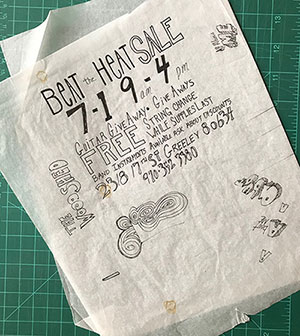 BEAT the HEAT SALE
7-19-4
am pm
GUITAR GIVE AWAY. GIVE AWAYS
FREE STRING CHANGE
WHILE SUPPLIES LAST
BAND INSTRUMENTS AVAILABLE ASK ABOUT DISCOUNTS
2318 17TH ST GREELEY 80634
THE WOODSHED